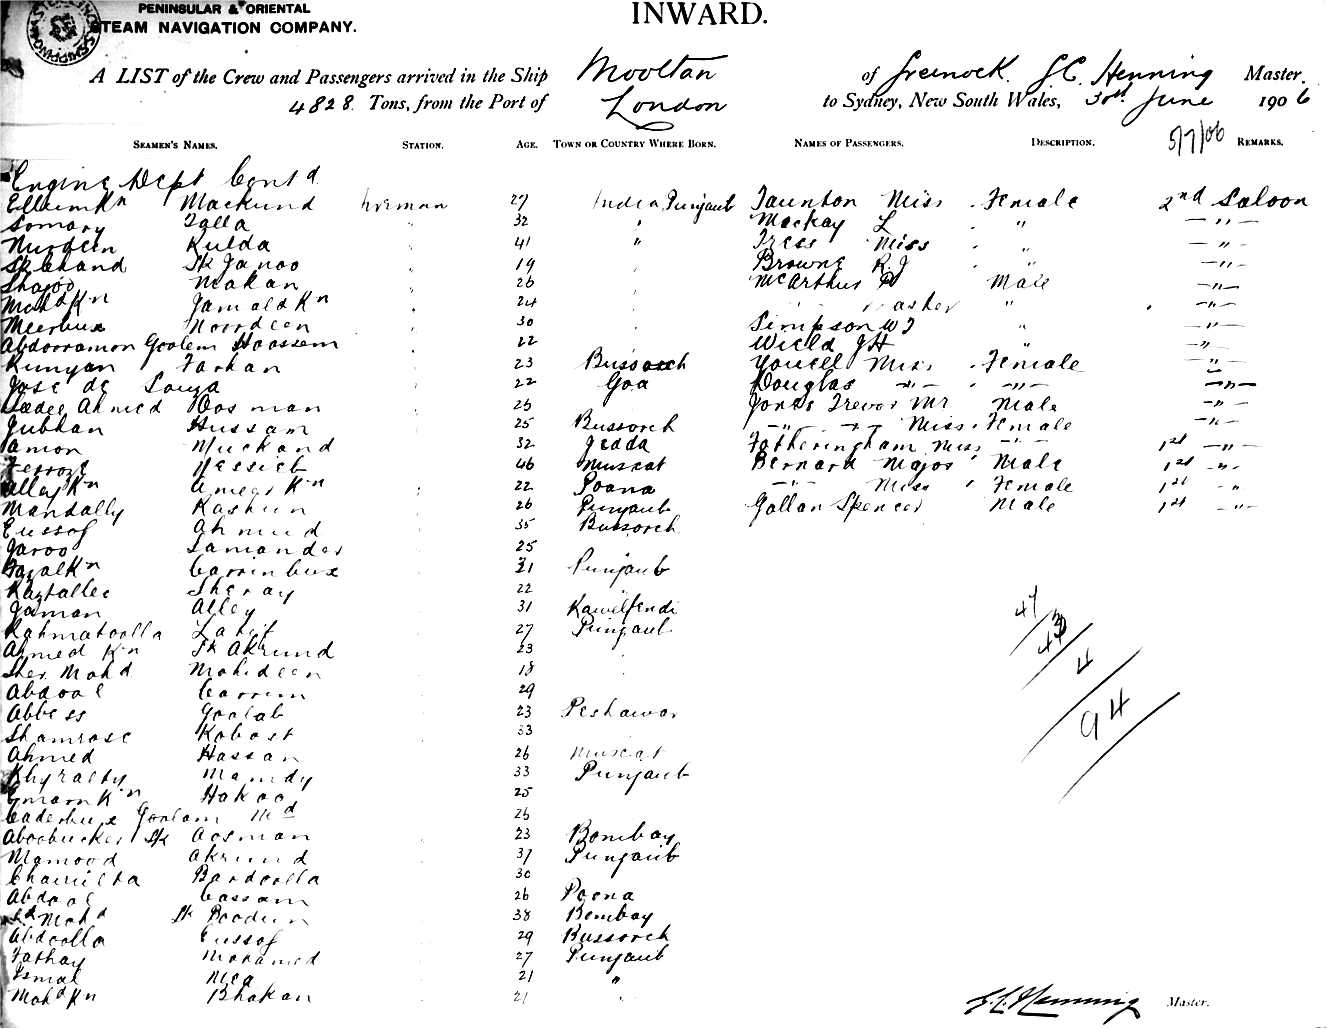 PENINSULAR & ORIENTAL
STEAM NAVIGATION COMPANY.
INWARD.
A LIST of the Crew and Passengers arrived in the Ship Mooltan of Greenock. G.C. Henning Master.
4828 Tons, from the Port of London to Sydney, New South Wales, 30th June 1906
SEAMEN'S NAMES. STATION. AGE. TOWN OR COUNTRY WHERE BORN. NAMES OF PASSENGERS. DESCRIPTION. 5/7/06 REMARKS.
Engine Dept Cont'd
Mackund 27 India Punjaub Taunton Miss Female 2nd Saloon
Somary Talla 32 " Mackay L " — " —
Nurdeen Kulda 41 " Tress Miss " — " —
Sk Chand Sk Janoo 19 Browne R.J " — " —
Shajoo Makan 26 McArthur D Male — " —
Mohd Kn Jamald Kn 24 " — " —
Meerbux Noordeen 30 Simpson W J " — " —
Abdorramon Goolem Hoossem 22 J H " — " —
Kunyan Farhan 23 Bussorch Youell Miss Female "
Jose de Souza 22 Goa Douglas — " — — " — — " —
Ahmed Oosman 25 Jones Trevor Mr Male — " —
Jubhan Hussam 25 Bussorch — " — Miss Female — " —
Amon Muckand 32 Jedda Fotheringham Miss — " — 1st — " —
Feroze Nessieb 46 Muscat Bernard Major Male 1st — " —
Allay Kn Ameer Kn 22 Poona — " — Miss Female 1st "
Mandally Kashun 26 Punjaub Gollan Spencer Male 1st — " —
Eussof Ahmud 35 Bussorch
Jaroo Samander 25
Fazal Kn Carrimbux 21 Punjaub
Kaytallee Sheray 22
Jaman Alley 31 Kawilfendi
Rahmatoolla Latif 27 Punjaub
Ahmed Kn Sk Akmud 23
Sher Mohd Mohideen 18
Abdool Carrim 29
Abbess Goolab 23 Peshawor
Shamrose Kobost 33
Ahmed Hassan 26 Muscat
Khyralty Mamdy 33 Punjaub
Emam Kn Hakoo 25
Caderbux Goolam Md 26
Aboobucker Sk Aosman 23 Bombay
Mamood Akmud 37 Punjaub
Bardoolla 30
Abdool Cassam 26 Poona
Mohd Sk Boodun 38 Bombay
Abdoolla Eussof 29 Bussorch
Fathay Mohamed 27 Punjaub
Ismal Mea 21 "
Mohd Kn Bhakan 21
47
43
4
94
G.C. Henning Master.